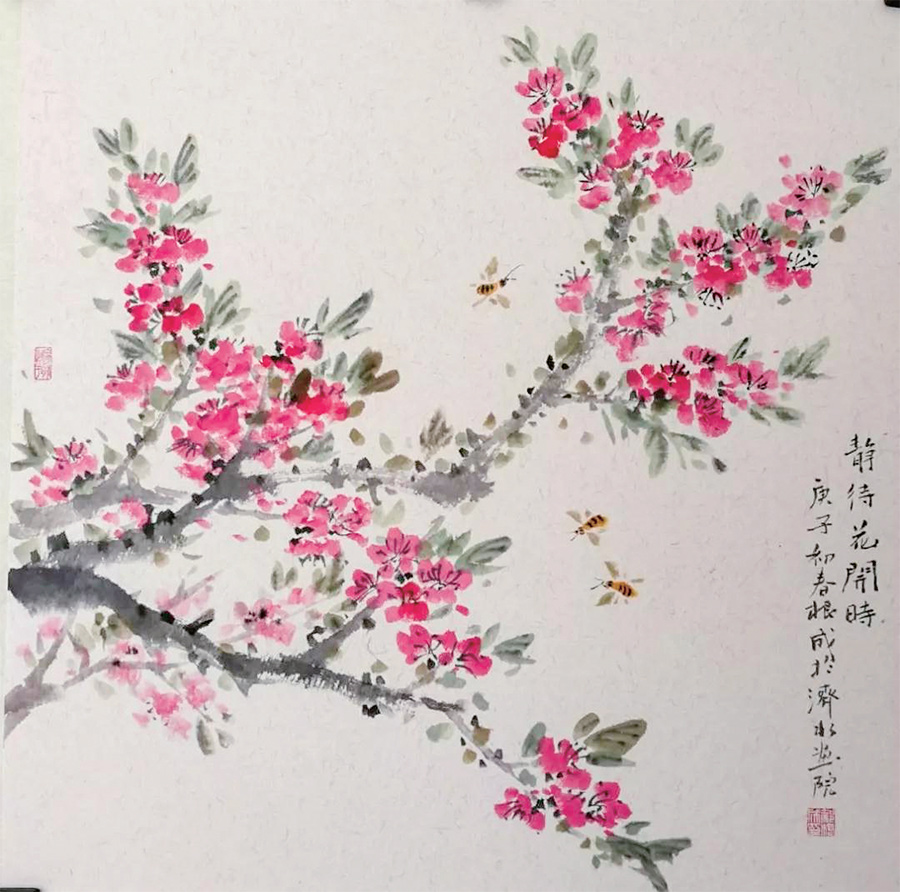 静待花開時
庚子初春根成於濟水画院